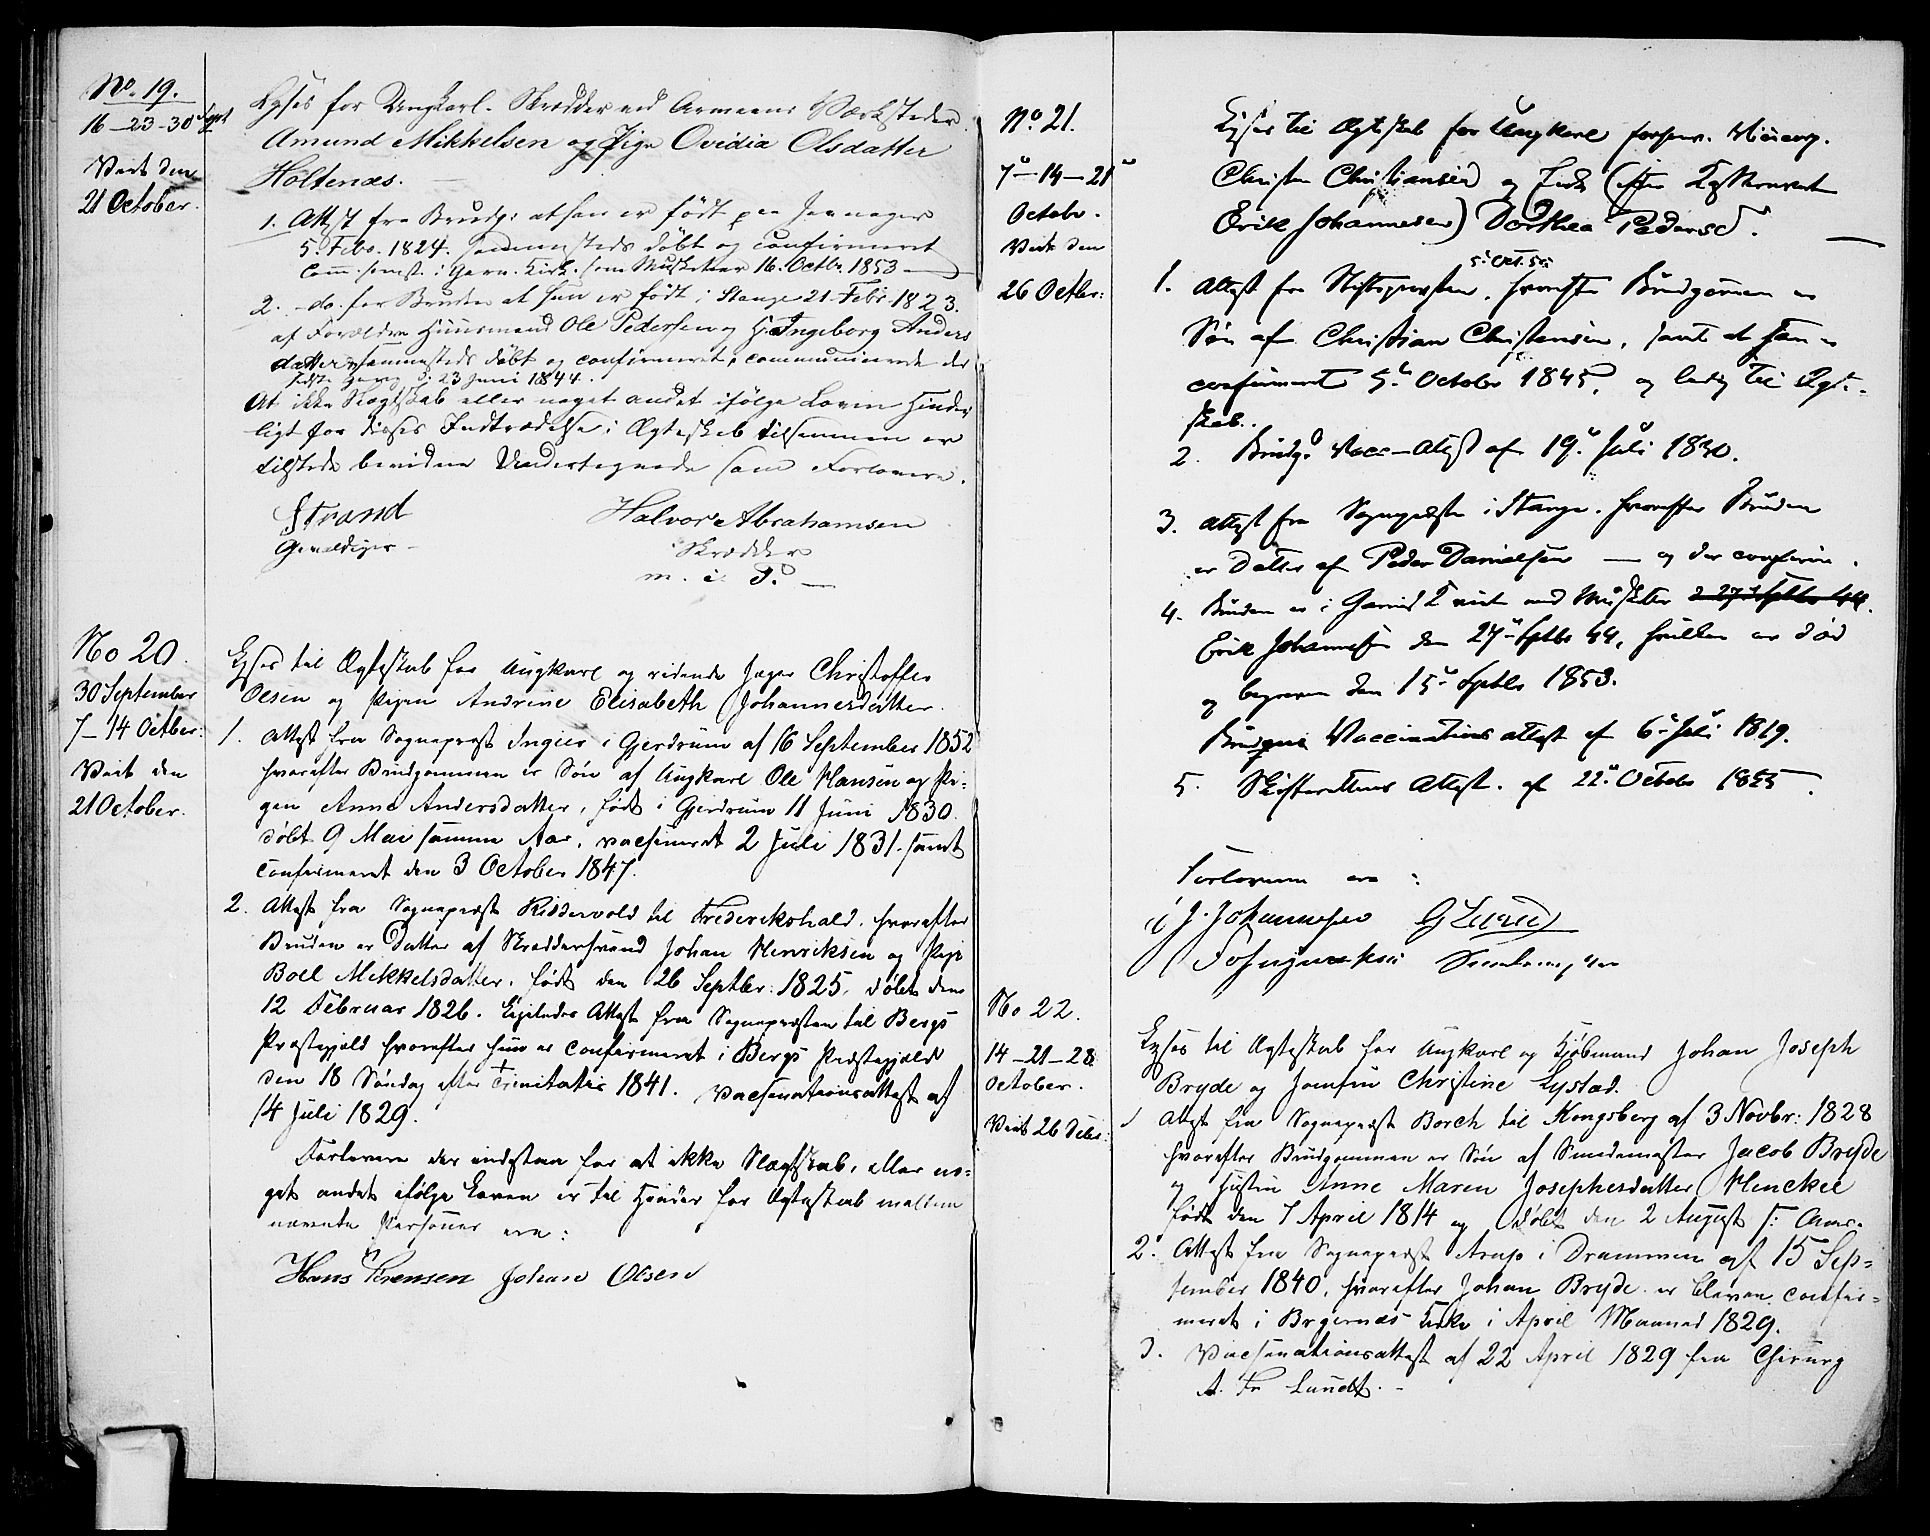 No. 19.
16-23-30 Sept
Viet den
21 October.
Lyses for Ungkarl. Skrædder ved Armeens Værksteder
Amund Mikkelsen og Pige Ovidia Olsdatter
Holtenæs.
1. Attest fra Brudg: at han er født paa
5. Febr. 1824. sammesteds døbt og confirmeret
Garn. Kirk. som Musketeer 16. Octbr 1853
2. do. for Bruden at hun er født i Stange 21 Febr. 1823.
af Forældre Huusmand Ole Pedersen og H. Ingeborg Anders
datter sammesteds døbt og confirmeret, communicerede der
sidste Gang d: 23 Juni 1844.
At ikke Slægtskab eller noget andet ifølge Loven Hinder
ligt for disses Indtrædelse i Ægteskab tilsammen er
tilstede bevidne Undertegnede som Forlovere.
Strand
Gevaldiger
Halvor Abrahamsen
Skrædder
m. i. P.
No 20.
30 September
7-14 October:
Viet den
21 October.
Lyses til Ægteskab for Ungkarl og ridende Jæger Christoffer
Olsen og Pigen Andrine Elisabeth Johannesdatter.
1. Attest fra Sognepræst Ingier i Gjerdrum af 16 September 1852
hvorefter Brudgommen er Søn af Ungkarl Ole Hansen og Pi-
gen Anne Andersdatter, født i Gjerdrum 11 Juni 1830.
døbt 9 Mai samme Aar, vacsineret 2 Juli 1831. samt
confirmeret den 3 October 1847.
2. Attest fra Sognepræst Riddervold til Frederikshald, hvorefter
Bruden er Datter af Skræddersvend Johan Henriksen og Pige
Boel Mikkelsdatter, født den 26 Septbr: 1825, døbt den
12 Februar 1826. Ligeledes Attest fra Sognepræsten til Bergs
Præstegjeld hvorefter hun er confirmeret i Bergs Præstegjeld
den 18 Søndag efter Trinitatis 1841. Vacsinationsattest af
14 Juli 1829.
Forlovere der indestaa for at ikke Slægtskab, eller no-
get andet ifølge Loven er til Hinder for Ægteskab mellem
nævnte Personer ere:
Hans Sørensen Johan Olsen
No. 21.
7-14-21
October.
Viet den
26 Octbr:
Lyses til Ægteskab for Ungkarl
Christen Christiansen og Enke (efter
Erik Johannesen) Dorthea Pedersd.
1. Attest fra Stiftsprovsten, hvorefter Brudgommen er
Søn af Christian Christensen, samt at han er
confirmeret 5te October 1845, og ledig til Ægte-
skab.
2. Brudg. Vacc-Attest af 19de Juli 1830.
3. Attest fra Sognepræsten i Stange, hvorefter Bruden
er Datter af Peder Danielsen og der confirm.
4. Bruden er i Garnis. K. viet med Musketer
Erik Johannesen den 27de Septbr 44, hvilken er død
og begraven den 15de Septbr 1853.
Vaccinations attest af 6te Juli 1819.
5. Skifterettens Attest af 22de October 1855.
Forloverne ere:
J. Johannesen G Lund
No 22.
14-21-28
October.
Viet 26 Octbr:
Lyses til Ægteskab for Ungkarl og Kjøbmand Johan Joseph
Bryde og Jomfru Christine Lystad.
1 Attest fra Sognepræst Borch til Kongsberg af 3 Novbr: 1828
hvorefter Brudgommen er Søn af Smedemester Jacob Bryde
og Hustru Anne Maren Josephesdatter Henckel
født den 7 April 1814 og døbt den 2 August s: Aar.
2. Attest fra Sognepræst Arup i Drammen af 15 Sep-
tember 1840, hvorefter Johan Bryde er bleven confir-
meret i Bragernæs Kirke i April Maaned 1829.
3. Vacsinationsattest af 22 April 1829 fra Chirurg
A. Fr Lundt.